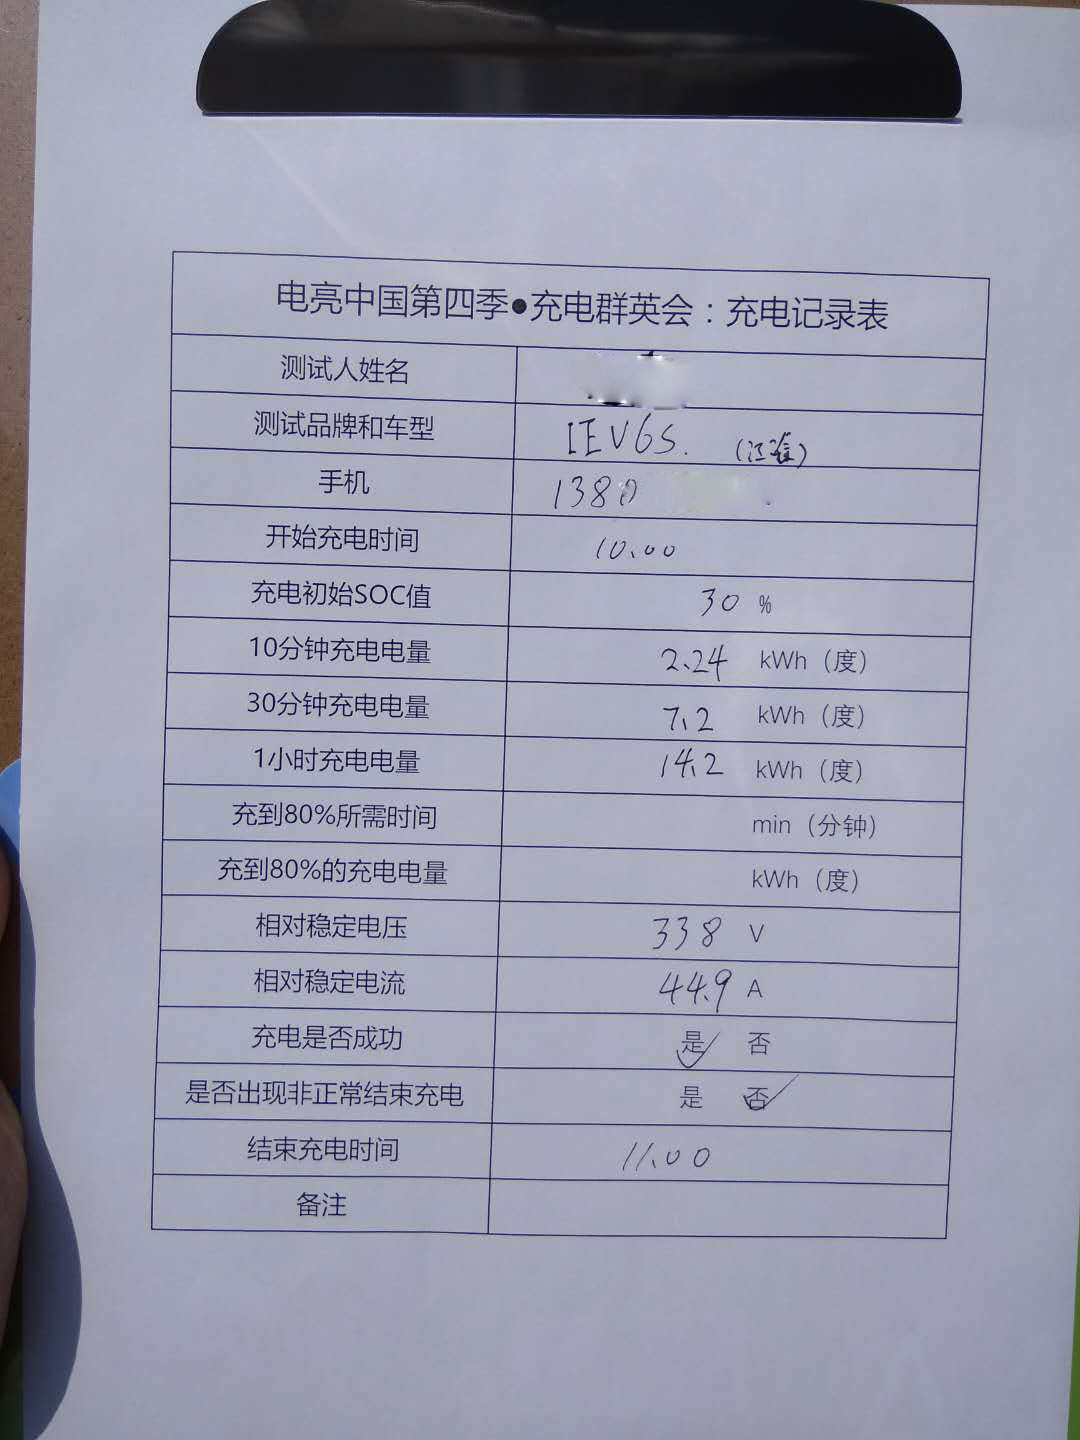 电亮中国第四季●充电群英会：充电记录表
测试人姓名
测试品牌和车型 IEV6S. (江淮)
手机 1380
开始充电时间 10.00
充电初始SOC值 30 %
10分钟充电电量 2.24 kWh（度）
30分钟充电电量 7.2 kWh（度）
1小时充电电量 14.2 kWh（度）
充到80%所需时间 min（分钟）
充到80%的充电电量 kWh（度）
相对稳定电压 338 V
相对稳定电流 44.9 A
充电是否成功 是✓ 否
是否出现非正常结束充电 是 否✓
结束充电时间 11.00
备注